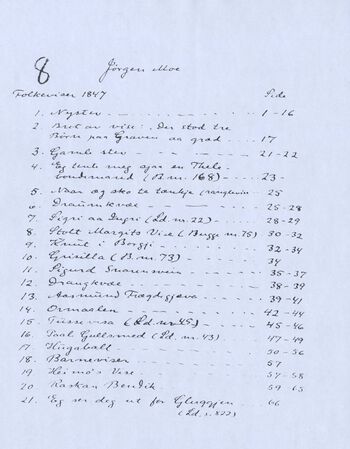 8 Jörgen Moe
Folkeviser 1847 Side
1. Nystev 1-16
2. Brot av vise: Der stod tre
Börn paa Graven aa grad 17
3. Gamle stev 21-22
4. Eg tente meg ajaa en Thele-
bondemand (B. nr. 168) 23-
5. Naar eg sko te tænkje 25
6. Draumkvæde 25-28
7. Sigri aa Ingri (Ld. nr. 22) 28-29
8. Stolt Margits Vise (Bugge nr. 75) 30-32
9. Knut i Borgji 32-34
10. Grisilla (B. nr. 73) 34
11. Sigurd Svaunsvein 35-37
12. Draugkvæde 38-39
13. Aasmund Frægdegjæva 39-41
14. Ormaalen 42-44
15. Tussevisa (Ld. nr. 45) 45-46
16. Paal Gullsmed (Ld. nr. 43) 47-49
17. Hugaball 50-56
18. Barneviser 57
19. Heimo's Vise 57-58
20 Raskan Bendik 59-65
21. Eg ser deg ut for Gluggjen 66
(Ld. s. 822)